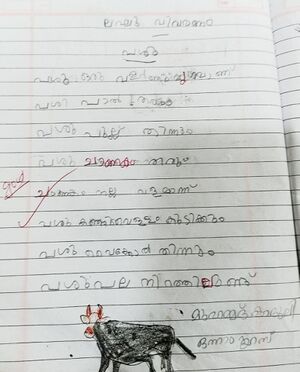 ലഘു വിവരണം
പശു
പശു ഒരു വളർത്തുമൃഗമാണ്
പശു പാൽ തരും
പശു പുല്ല് തിന്നും
പശു തിന്നും
good
നല്ല വളമാണ്
പശു കഞ്ഞിവെള്ളം കുടിക്കും
പശു വൈക്കോൽ തിന്നും
പശു പല നിറത്തിലുണ്ട്
മുഹമ്മദ്
ഒന്നാം ക്ലാസ്